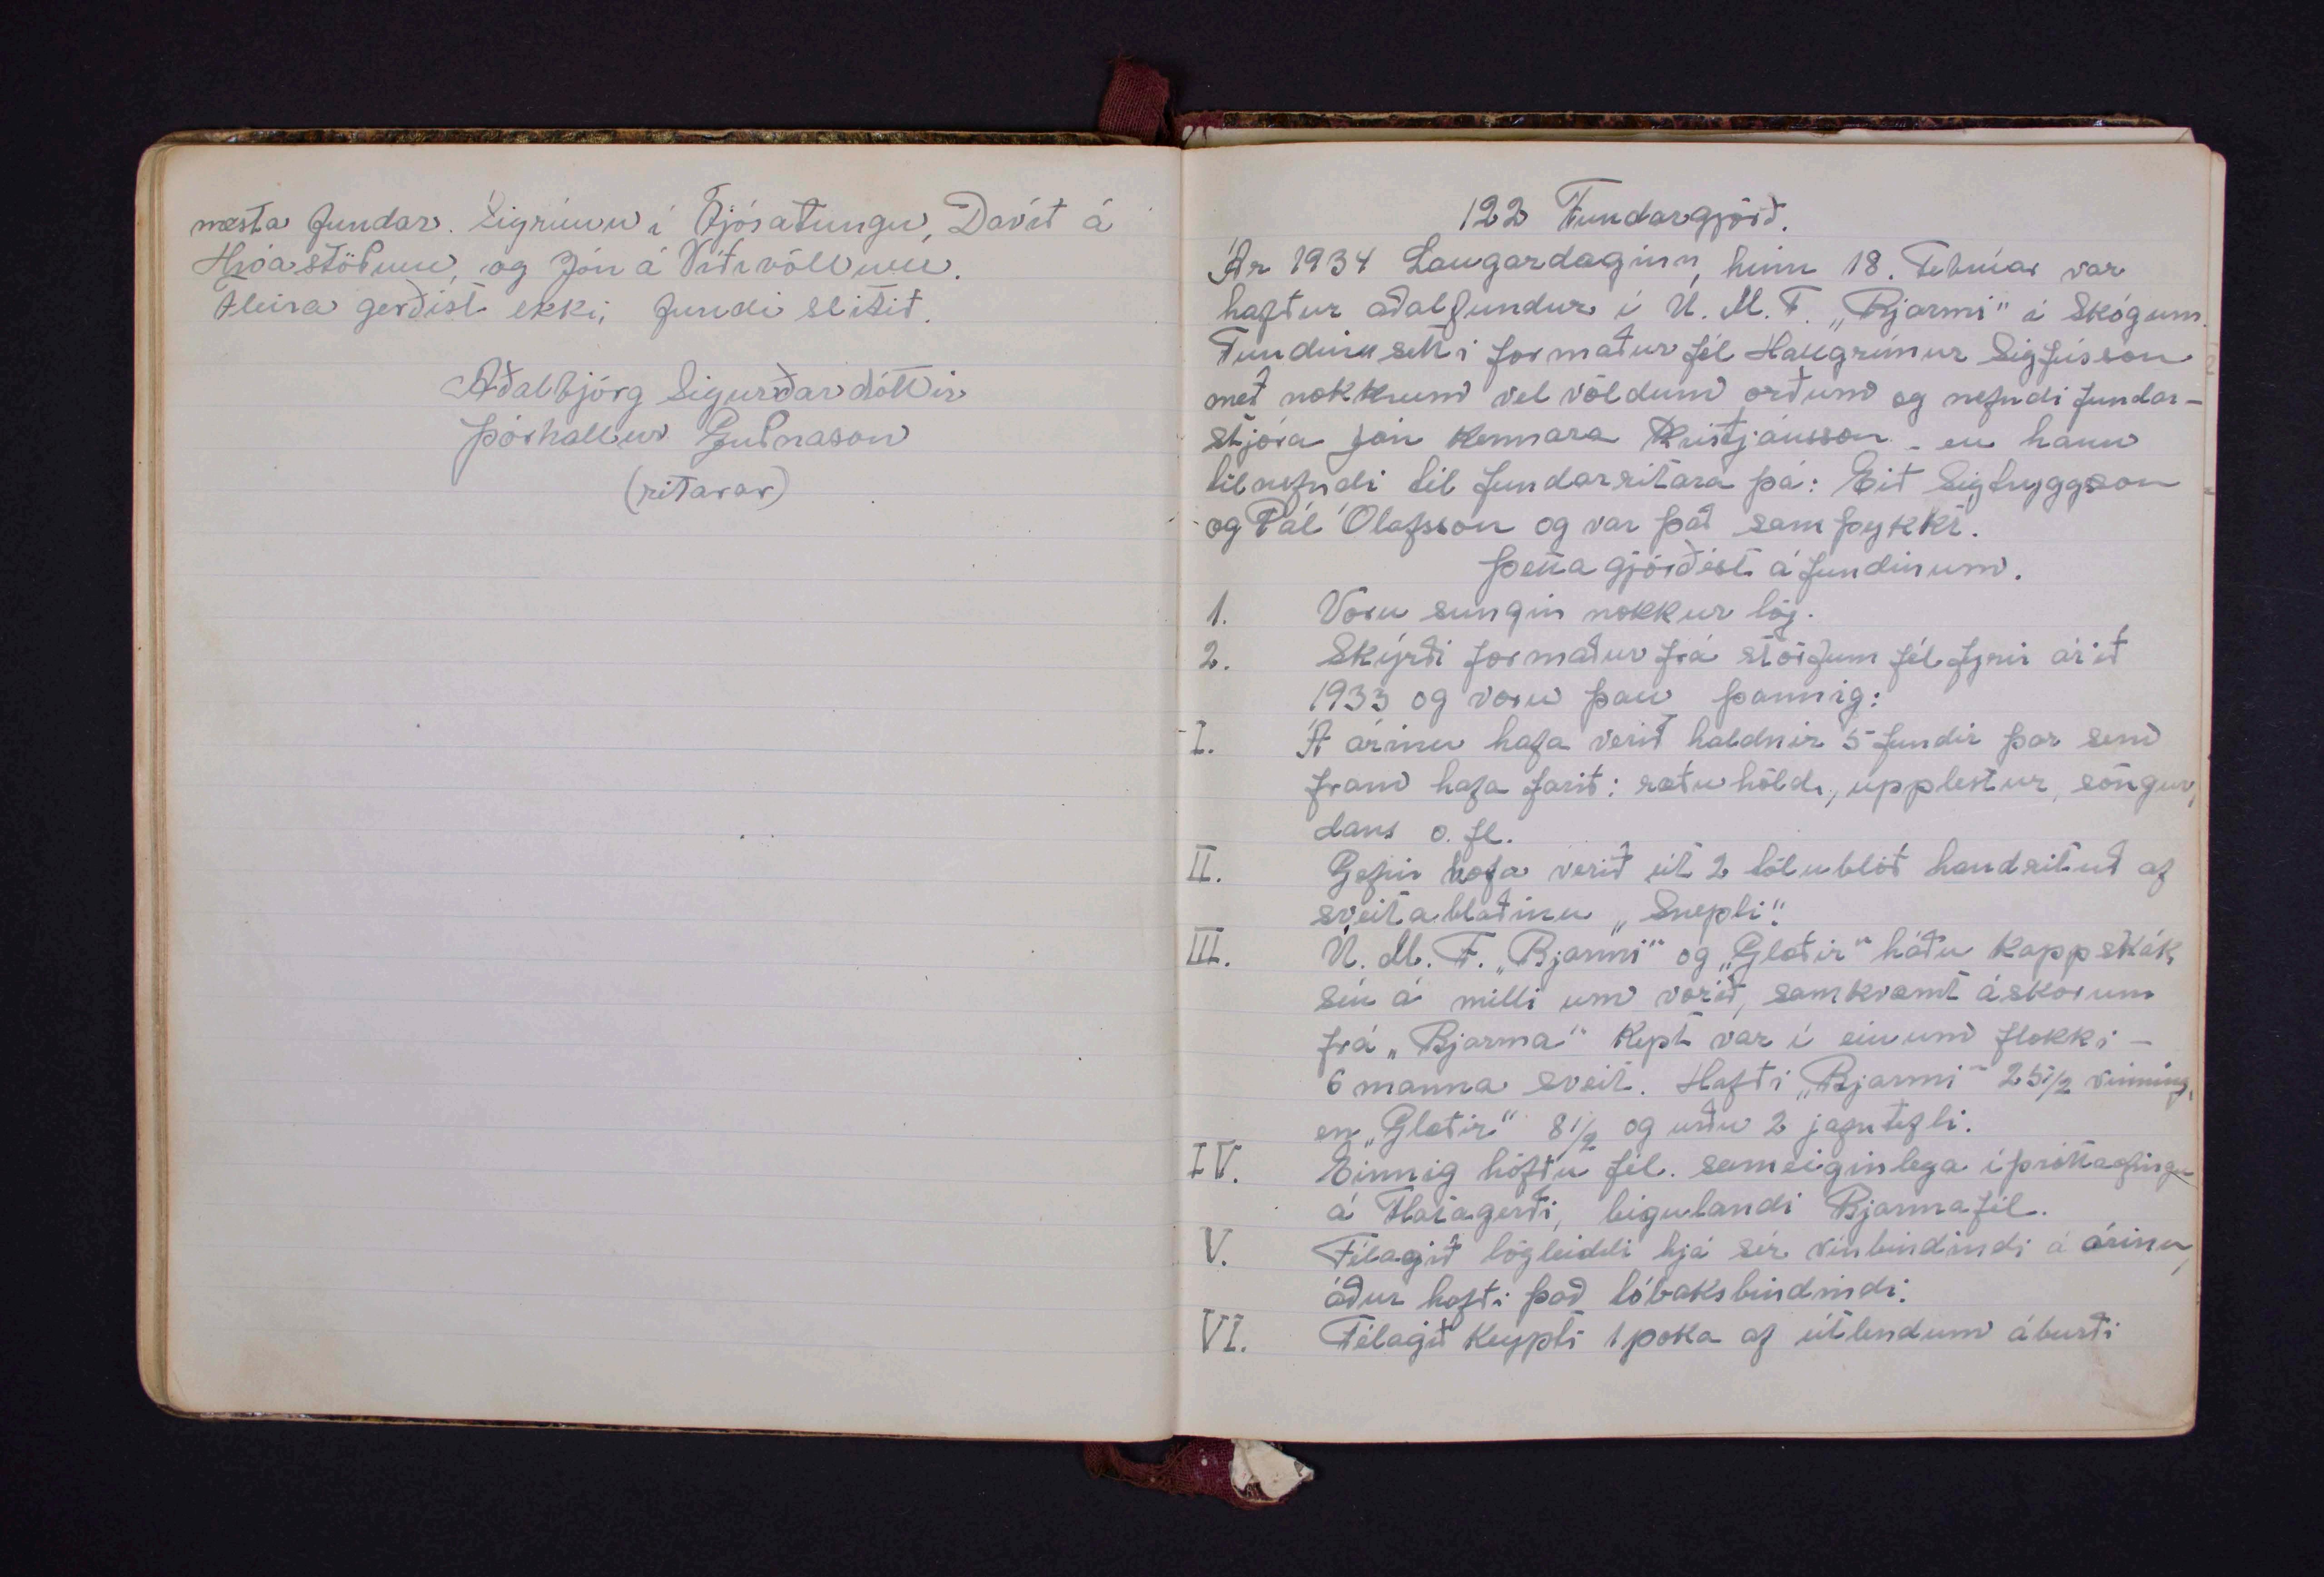 næsta fundar. Sigrúnu í Fjósatungu, Davíð á
Hróastöðum, og Jón á Víðivöllum.
Fleira gerðist ekki; fundi slitið.
Aðalbjörg Sigurðardóttir
Þórhallur Guðnason
(ritarar)
122 Fundargjörð.
Ár 1934 Laugardaginn, hinn 18. Febrúar var
hafður aðalfundur í U. M. F. „Bjarmi" í Skógum.
Fundinn setti formaður fél Hallgrímur Sigfússon
með nokkrum vel völdum orðum og nefndi fundar-
stjóra Jón kennara Kristjánsson - en hann
tilnefndi til fundarritara þá: Eið Sigtryggson
og Pál Ólafsson og var það samþykkt.
Þetta gjörðist á fundinum.
1. Voru sungin nokkur lög.
2. Skýrði formaður frá störfum fél fyrir árið
1933 og voru þau þannig:
I. Á árinu hafa verið haldnir 5 fundir þar sem
fram hafa farið: ræðuhöld, upplestur, söngur,
dans o. fl.
II. Gefin hafa verið út 2 tölublöð handrituð af
sveitablaðinu „Snepli".
III. U. M. F. „Bjarmi" og „Glæðir" háðu kappskák
sín á milli um vorið, samkvæmt áskorun
frá „Bjarma" Kept var í einum flokki -
6 manna sveit. Hafði „Bjarmi" 25 1/2 vinning,
en „Glæðir" 8 1/2 og urðu 2 jafntefli.
IV. Einnig höfðu fél. sameiginlega íþróttaæfingu
á Flatagerði, leigulandi Bjarmafél.
V. Félagið lögleiddi hjá sér vínbindindi á árinu,
áður hafði það tóbaksbindindi.
VI. Félagið keypti 1 poka af útlendum áburði